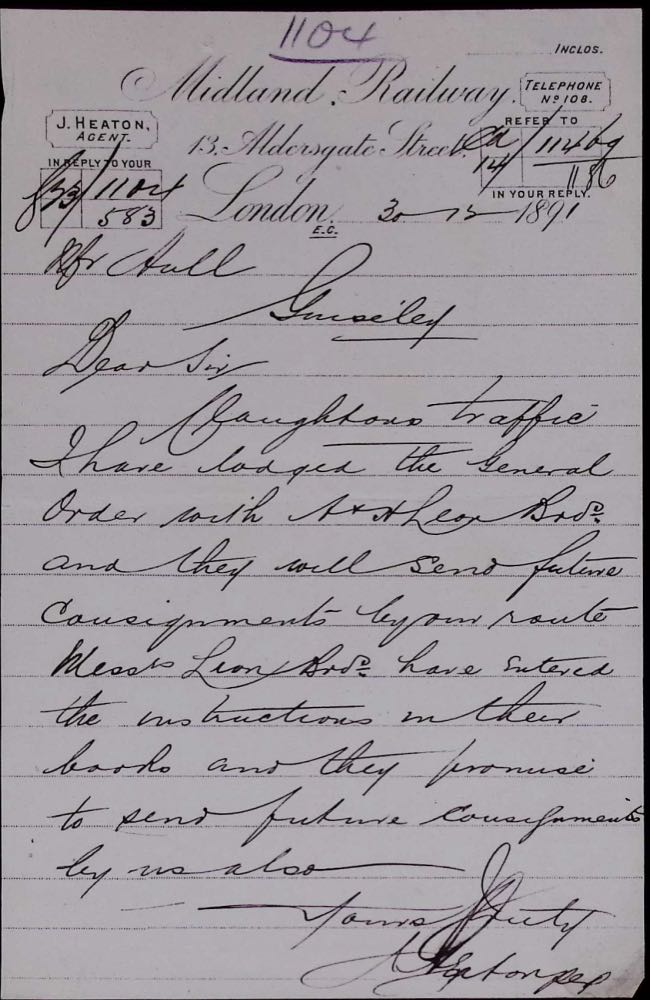 1104
INCLOS.
Midland Railway.
TELEPHONE
Nº 108.
J. HEATON,
AGENT.
REFER TO
13, Aldersgate Street,
14
1186
IN REPLY TO YOUR
1104
583
IN YOUR REPLY.
London
E.C.
30 12 1891
Mr Hull
Guiseley
Dear Sir
Claughtons traffic
I have lodged the General
Order with A & H Leon Bros.
and they will send future
Consignments by our route
Messrs Leon Bros. have entered
the instructions in their
books and they promise
to send future consignments
by us also
Yours truly
J Heaton